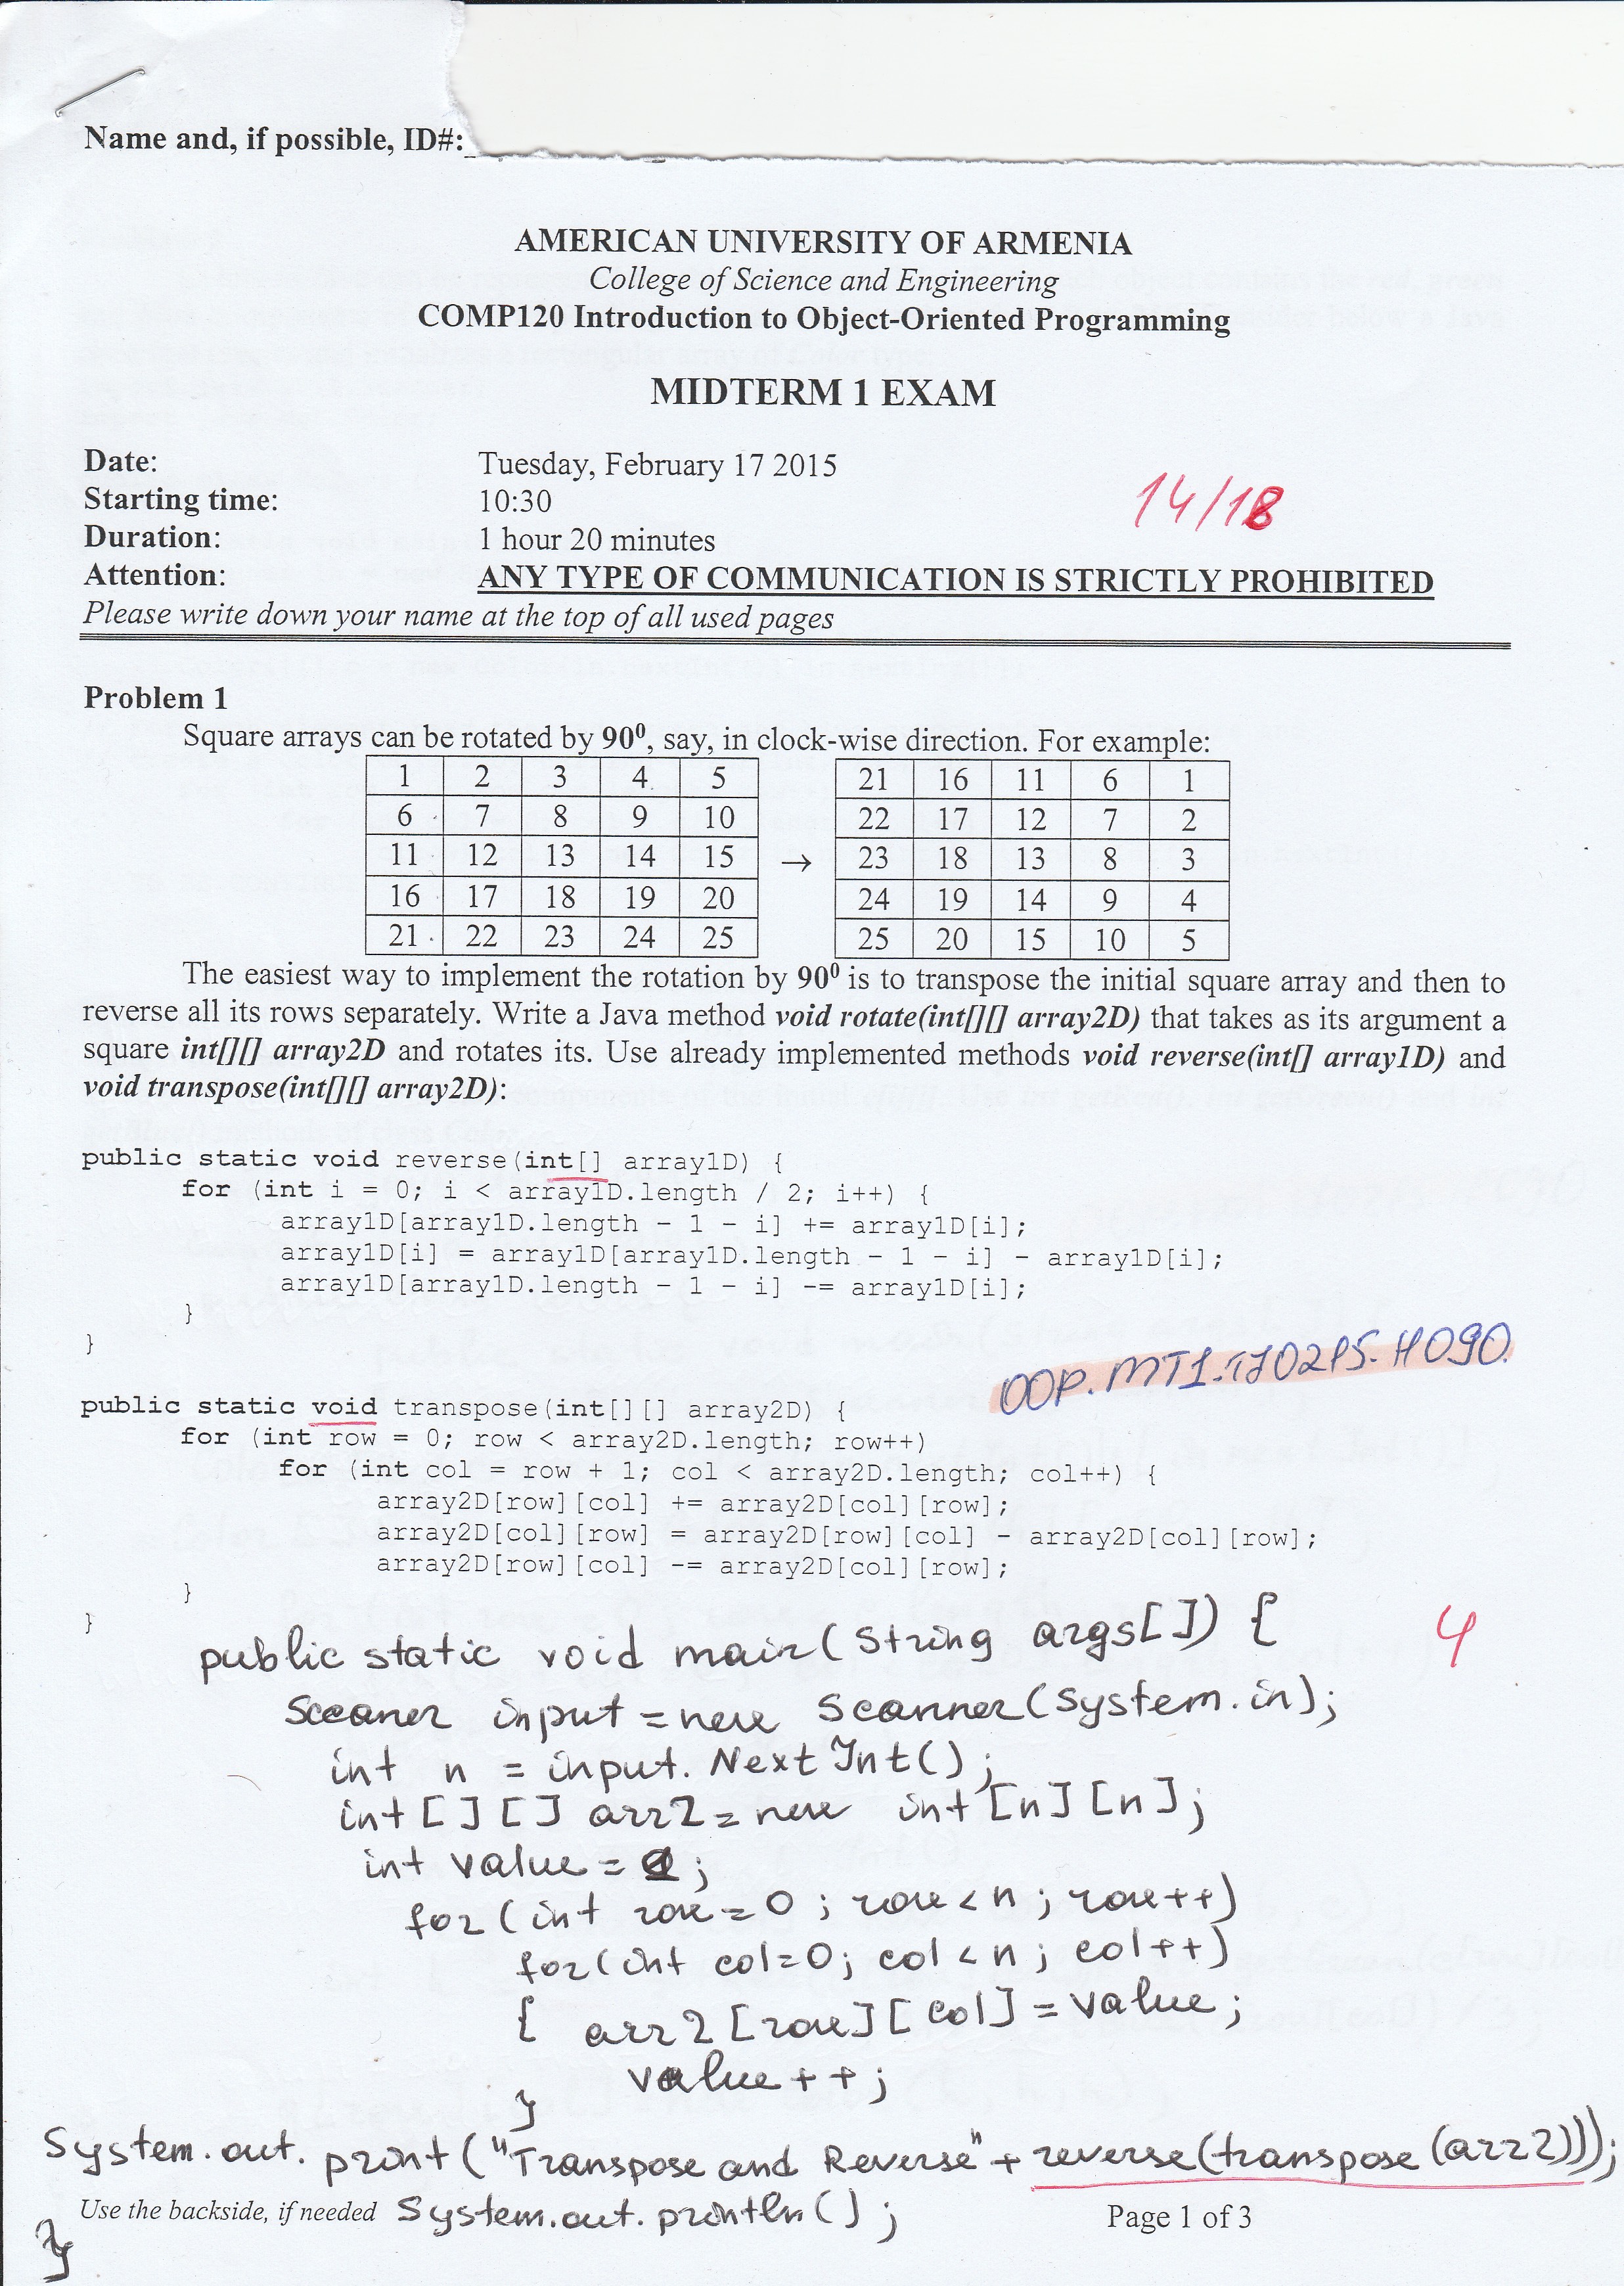 Name and, if possible, ID#:
AMERICAN UNIVERSITY OF ARMENIA
College of Science and Engineering
COMP120 Introduction to Object-Oriented Programming
MIDTERM 1 EXAM
Date: Tuesday, February 17 2015
Starting time: 10:30
14/18
Duration: 1 hour 20 minutes
Attention: ANY TYPE OF COMMUNICATION IS STRICTLY PROHIBITED
Please write down your name at the top of all used pages
Problem 1
Square arrays can be rotated by 90⁰, say, in clock-wise direction. For example:
1 2 3 4 5 21 16 11 6 1
6 7 8 9 10 22 17 12 7 2
11 12 13 14 15 → 23 18 13 8 3
16 17 18 19 20 24 19 14 9 4
21 22 23 24 25 25 20 15 10 5
The easiest way to implement the rotation by 90⁰ is to transpose the initial square array and then to
reverse all its rows separately. Write a Java method void rotate(int[][] array2D) that takes as its argument a
square int[][] array2D and rotates its. Use already implemented methods void reverse(int[] array1D) and
void transpose(int[][] array2D):
public static void reverse(int[] array1D) {
for (int i = 0; i < array1D.length / 2; i++) {
array1D[array1D.length - 1 - i] += array1D[i];
array1D[i] = array1D[array1D.length - 1 - i] - array1D[i];
array1D[array1D.length - 1 - i] -= array1D[i];
}
}
OOP.MT1.170215.H090
public static void transpose(int[][] array2D) {
for (int row = 0; row < array2D.length; row++)
for (int col = row + 1; col < array2D.length; col++) {
array2D[row][col] += array2D[col][row];
array2D[col][row] = array2D[row][col] - array2D[col][row];
array2D[row][col] -= array2D[col][row];
}
}
public static void main(String args[]) {
4
Sccaner input = new Scanner(System.in);
int n = input. NextInt();
int [ ] [ ] arr2 = new int [n] [n];
int value = 1;
for (int row = 0 ; row < n ; row++)
for (int col = 0; col < n ; col++)
{ arr2 [row] [col] = value;
value++;
}
System.out. print ("Transpose and Reverse" + reverse(transpose (arr2)));
Use the backside, if needed System.out. println();
Page 1 of 3
}